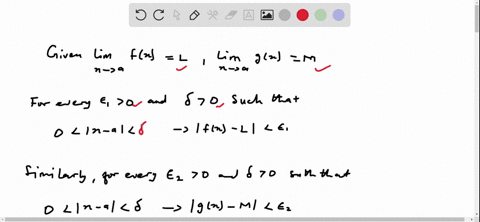 Given lim f(x) = L , lim g(x) = M
x→a x→a
For every ε₁ >0 and δ >0 such that
0 < |x-a| < δ → |f(x) - L| < ε₁
Similarly, for every ε₂ >0 and δ >0 such that
0 < |x-a| < δ → |g(x) - M| < ε₂